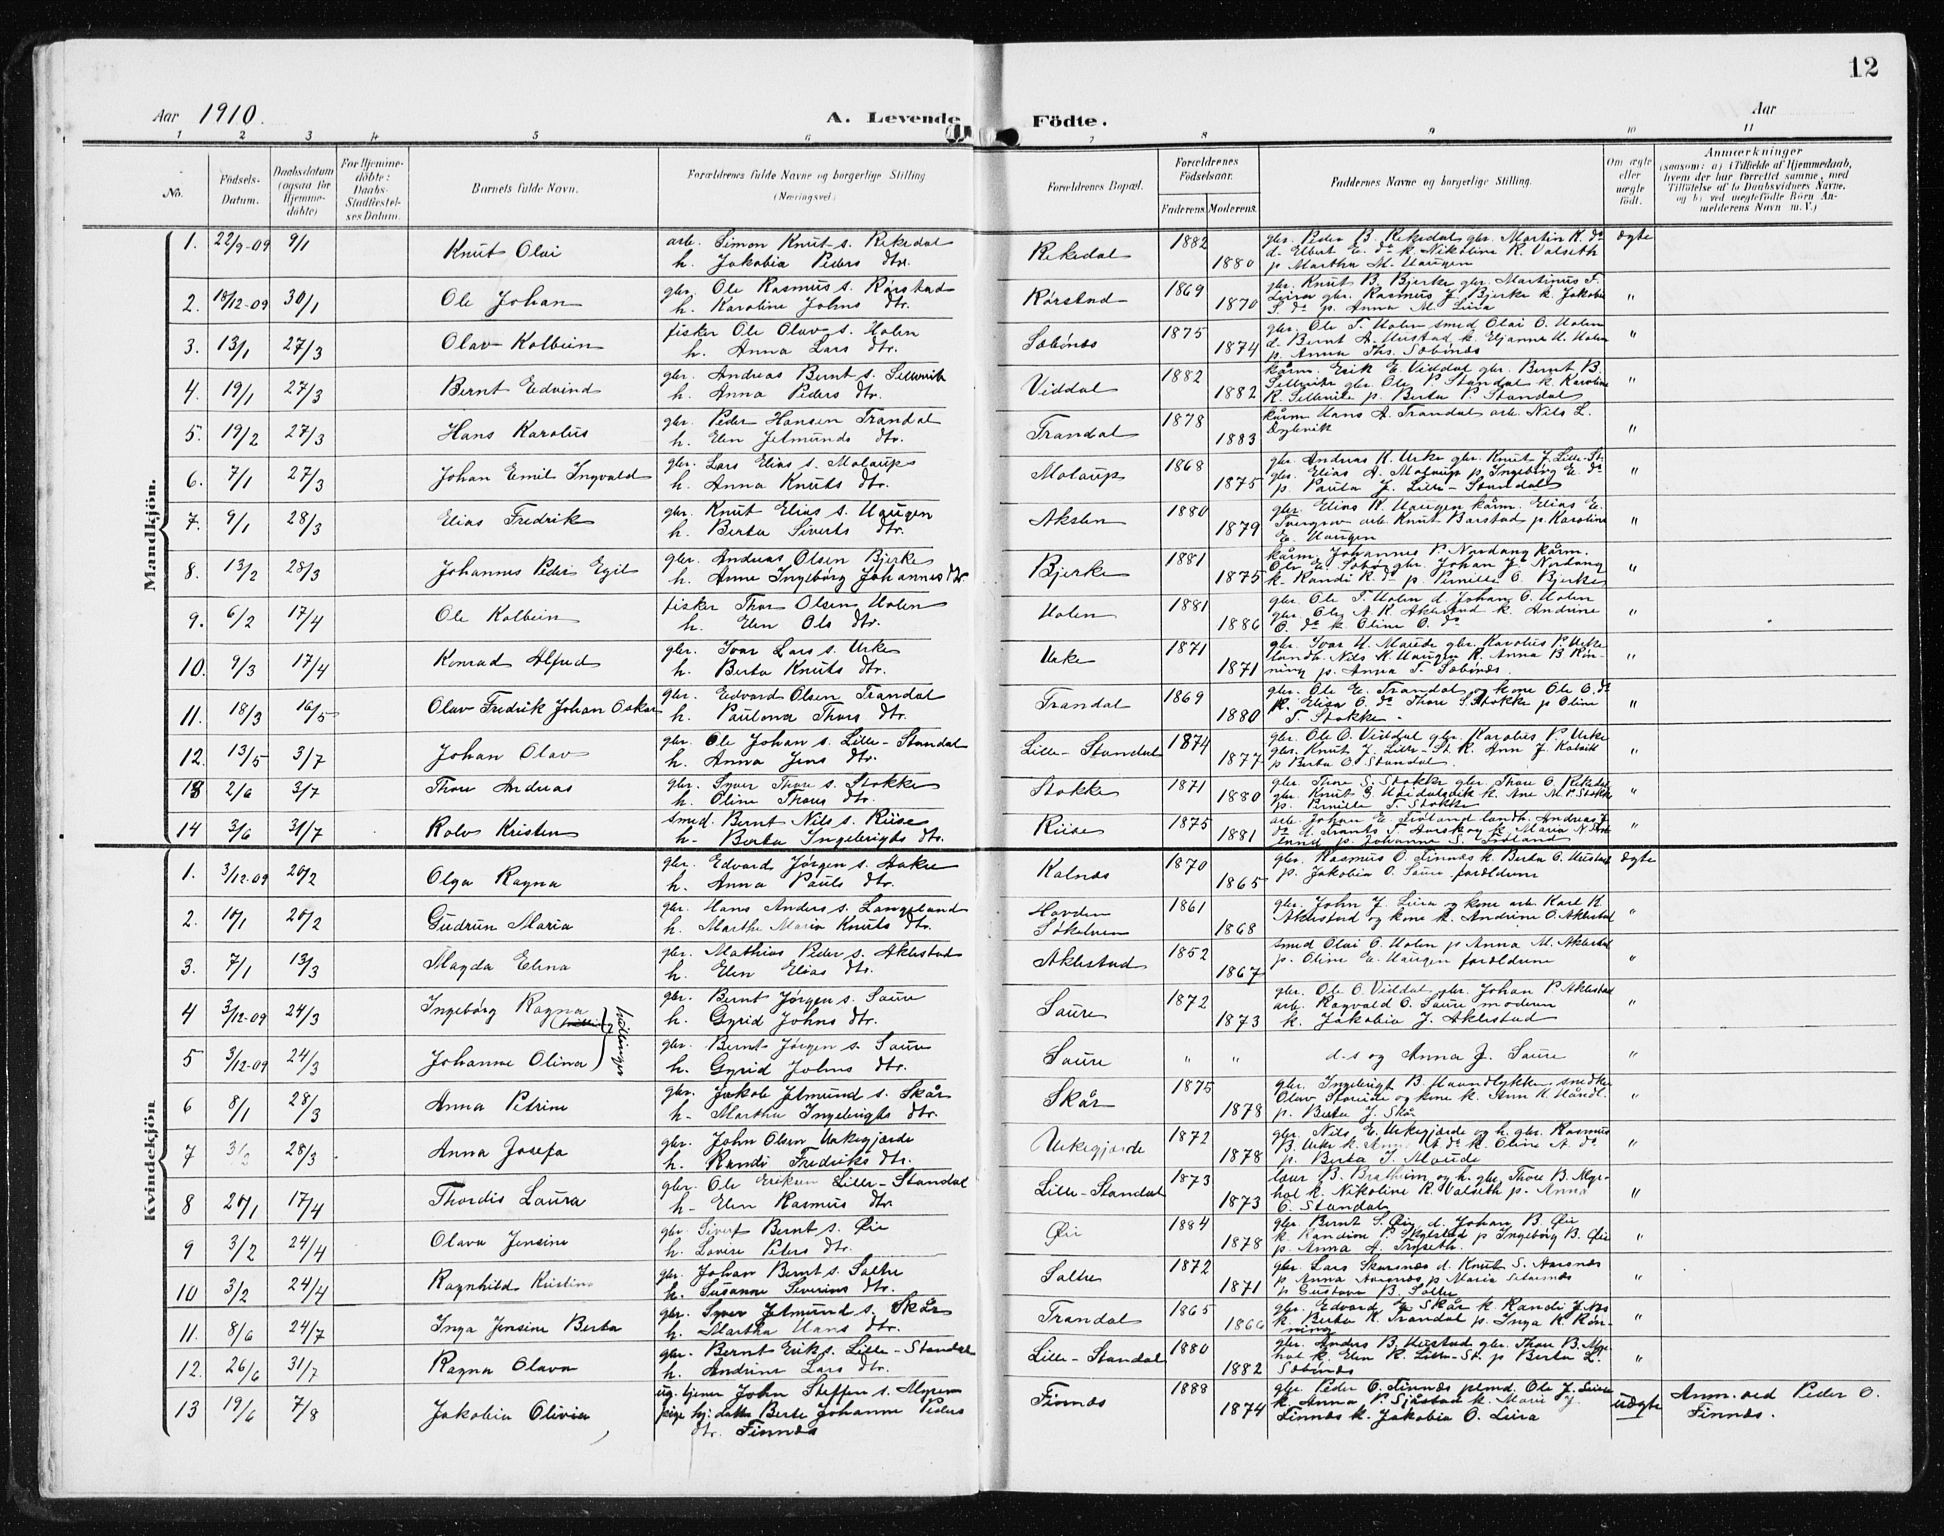 12
Aar 1910.
A. Levende Födte.
Aar
1 2 3 4 5 6 7 8 9 10 11
No.
Födsels-Datum.
Daabsdatum (ogsaa for Hjemmedöbte)
For Hjemmedöbte: Daabs-Stadfæstelses Datum.
Barnets fulde Navn.
Forældrenes fulde Navne og borgerlige Stilling (Næringsvei)
Forældrenes Bopæl.
Forældrenes Födselsaar.
Faderens. Moderens.
Faddernes Navne og borgerlige Stilling.
Om ægte eller uægte födt.
Anmærkninger
(saasom: a) i Tilfælde af Hjemmedaab, hvem der har forrettet samme, med Tilföielse af to Daabsvidners Navne, og b) ved uægtefödte Börn Anmelderens Navn m. V.)
Mandkjön.
1. 22/9-09 9/1 Knut Olai arb. Simon Knut s. Rekedal h. Jakobia Peders dtr. Rekedal 1882 1880 gbr. Peder B. Rekedal gbr. Martin K. do d. Elbert E. do k. Nikoline R. Valseth p. Martha M. Haugen ægte
2. 18/12-09 30/1 Ole Johan gbr. Ole Rasmus s. Rørstad h. Karoline Johns dtr. Rørstad 1869 1870 gbr. Knut B. Bjerke gbr. Martinus F. Leira gbr. Rasmus J. Bjerke k. Jakobia S. do p. Anna M. Leira "
3. 13/1 27/3 Olav Kolbein fisker Ole Olav s. Holen h. Anna Lars dtr. Sæbönes 1875 1874 gbr. Ole T. Holen smed Olai O. Holen d. Bernt A. Hustad k. Eljanna H. Holen p. Anna Ths. Sæbönes "
4. 19/1 27/3 Bernt Edvind gbr. Andreas Bernt s. Sellevik h. Anna Peders dtr. Viddal 1882 1882 kårm. Erik E. Viddal gbr. Bernt B. Sellevik gbr. Ole P. Standal k. Karoline R. Sellevik p. Berta P. Standal "
5. 19/2 27/3 Hans Karolus gbr. Peder Hansen Trandal h. Elen Jetmunds dtr. Trandal 1878 1883 kårm Hans A. Trandal arb. Nils L. "
6. 7/1 27/3 Johan Emil Ingvald gbr. Lars Elias s. Molaup h. Anna Knuts dtr. Molaup 1868 1875 gbr. Andreas K. Urke gbr. Knut J. Lille-St. gbr. Elias A. Molaup p. Ingeborg E. do p. Paula J. Lille-Standal "
7. 9/1 28/3 Elias Fredrik gbr. Knut Elias s. Haugen h. Berta Siverts dtr. Akslen 1880 1879 gbr. Elias K. Haugen kårm. Elias E. Tvergrov arb. Knut Barstad p. Karoline E. Haugen "
8. 13/2 28/3 Johannes Peder Egil gbr. Andreas Olsen Bjerke h. Anne Ingebörg Johannes dtr Bjerke 1881 1875 kårm. Johannes P. Nordang kårm. Ole E. Sæbø gbr. Johan Js Nordang k. Randi R. do p. Pernille O. Bjerke "
9. 6/2 17/4 Ole Kolbein fisker Thor Olsen Holen h. Elen Ols dtr. Holen 1881 1886 gbr. Ole T. Holen d. Johan O. Holen gbr. Ole A. K. Aklestad k. Andrine O. do k. Oline O. do "
10. 9/3 17/4 Konrad Alfred gbr. Ivar Lars s. Urke h. Berta Knuts dtr. Urke 1871 1871 gbr. Ivar H. Maude gbr. Karolus P. Urke landh. Nils K. Haugen k. Anna B. Rönning p. Anna T. Sæbönes. "
11. 18/3 16/5 Olav Fredrik Johan Oskar gbr. Edvard Olsen Trandal h. Paulona Thors dtr. Trandal 1869 1880 gbr. Ole E. Trandal og kone Ole O. do k. Elisa O. do Thore S. Stokke p Oline T. Stokke "
12. 13/5 3/7 Johan Olav gbr. Ole Johan s. Lille-Standal h. Anna Jens dtr. Lille-Standal 1874 1877 gbr. Ole O. Viddal gbr. Karolus P. Urke gbr. Knut J. Lille-St. k. Ann J. p Berta O. Standal. "
13 2/6 3/7 Thore Andreas gbr. Syver Thore s. Stokke h. Oline Thores dtr. Stokke 1871 1880 gbr. Thine S. Stokke gbr. Thore O. Rekedal gbr. Knut G. k. Ane M. P. Stokke p. Pernille T. Stokke "
14 3/6 31/7 Rolv Kristen smed. Bernt Nils s. Riise h. Berta Ingebrigts dtr. Riise 1875 1881 arb. Johan E. Fröland landh. Andreas J. do H. Trants T. Aarskog k. Maria N. p. Johanne S. Fröland "
Kvindekjön
1. 3/12-09 20/2 Olga Ragna gbr. Edvard Jörgen s. Aakre h. Anna Pauls dtr. Kalnes 1870 1865 gbr. Rasmus O. Finnes k. Berta O. Hustad p. Jakobia O. Saure forældrene ægte
2. 10/1 20/2 Gudrun Maria gbr. Hans Anders s. Langeland h. Marthe Maria Knuts dtr. Hovden Søkelven 1861 1868 gbr. John J. Leira og kone arb. Karl K. Aklestad og kone k. Andrine O. Aklestad "
3. 7/1 13/3 Magda Elina gbr. Mathias Peder s. Aklestad h. Elen Elias dtr. Aklestad 1852 1867 smed Olai O. Holen p Anna M. Aklestad p. Oline E. Haugen forældrene "
4 3/12-09 24/3 Ingebörg Ragna gbr. Bernt Jörgen s. Saure h. Gyrid Johns dtr. Saure 1872 1873 gbr. Ole O. Viddal gbr. Johan P. Aklestad arb. Ragvald O. Saure moderen k. Jakobia J. Aklestad "
tvillinger
5 3/12-09 24/3 Johanne Olina gbr. Bernt Jörgen s. Saure h. Gyrid Johns dtr. Saure " " d-s og Anna J. Saure "
6 8/1 28/3 Anna Petrine gbr. Jakob Jetmund s. Skår h. Martha Ingebrigts dtr. Skår 1875 1878 gbr. Ingebrigt B. Haandlykken snedker Olav Storeide og kone k. Ann K. Håndl. p. Berta J. Skår "
7 3/2 28/3 Anna Josefa gbr. John Olsen Urkegjerde h. Randi Fredriks dtr. Urkegjerde 1872 1878 gbr. Nils E. Urkegjerde og h. gbr. Rasmus B. Urke k. Ann A. do k. Oline A. do p. Berta I. Maude "
8 20/1 17/4 Thordis Laura gbr. Ole Eriksen Lille-Standal h. Elen Rasmus dtr Lille-Standal 1873 1873 lær B. Bratheim og h. gbr. Thore B. Myrhol k. Nikoline R. Valseth p. Anna O. Standal "
9 3/2 24/4 Olava Jensine gbr. Sivert Bernt s. Øie h. Lovise Peters dtr. Øie 1884 1878 gbr. Bernt S. Øie d. Johan B. Øie k. Randine P. Skylstad p Ingebörg B. Øie p. Anna A. Tryseth. "
10 3/2 24/4 Ragnhild Kristine gbr. Johan Bernt s. Saltre h. Susanne Severins dtr. Saltre 1872 1871 gbr. Lars Skarsnes d. Knut S. Aarsnes p. Anna Aarsnes p Maria p Gustava B. Saltre "
11. 8/6 24/7 Inga Jensine Berta gbr. Syver Jetmund s. Skår h. Martha Hans dtr. Trandal 1865 1866 gbr. Edvard J. Skår k. Randi J. Nes k. Berta K. Trandal p. Inga K. Rönning "
12. 26/6 31/7 Ragna Olava gbr. Bernt Erik s. Lille-Standal h. Andrine Lars dtr. Lille-Standal 1880 1882 gbr. Anders B. Hustad gbr. Thore B. Myrhol k. Elen R. Lille-St. p Berta L. Sæbönes "
13 19/6 7/8 Jakobia Olivia ug. tjener John Steffen s. Myren pige Berte Johanne Peders dtr. Finnes Finnes 1888 1874 gbr. Peder O. Finnes Ole J. Leira k. Anna P. Sjåstad k. Marie J. Finnes k. Jakobia O. Leira uægte Anm. ved Peder O. Finnes.